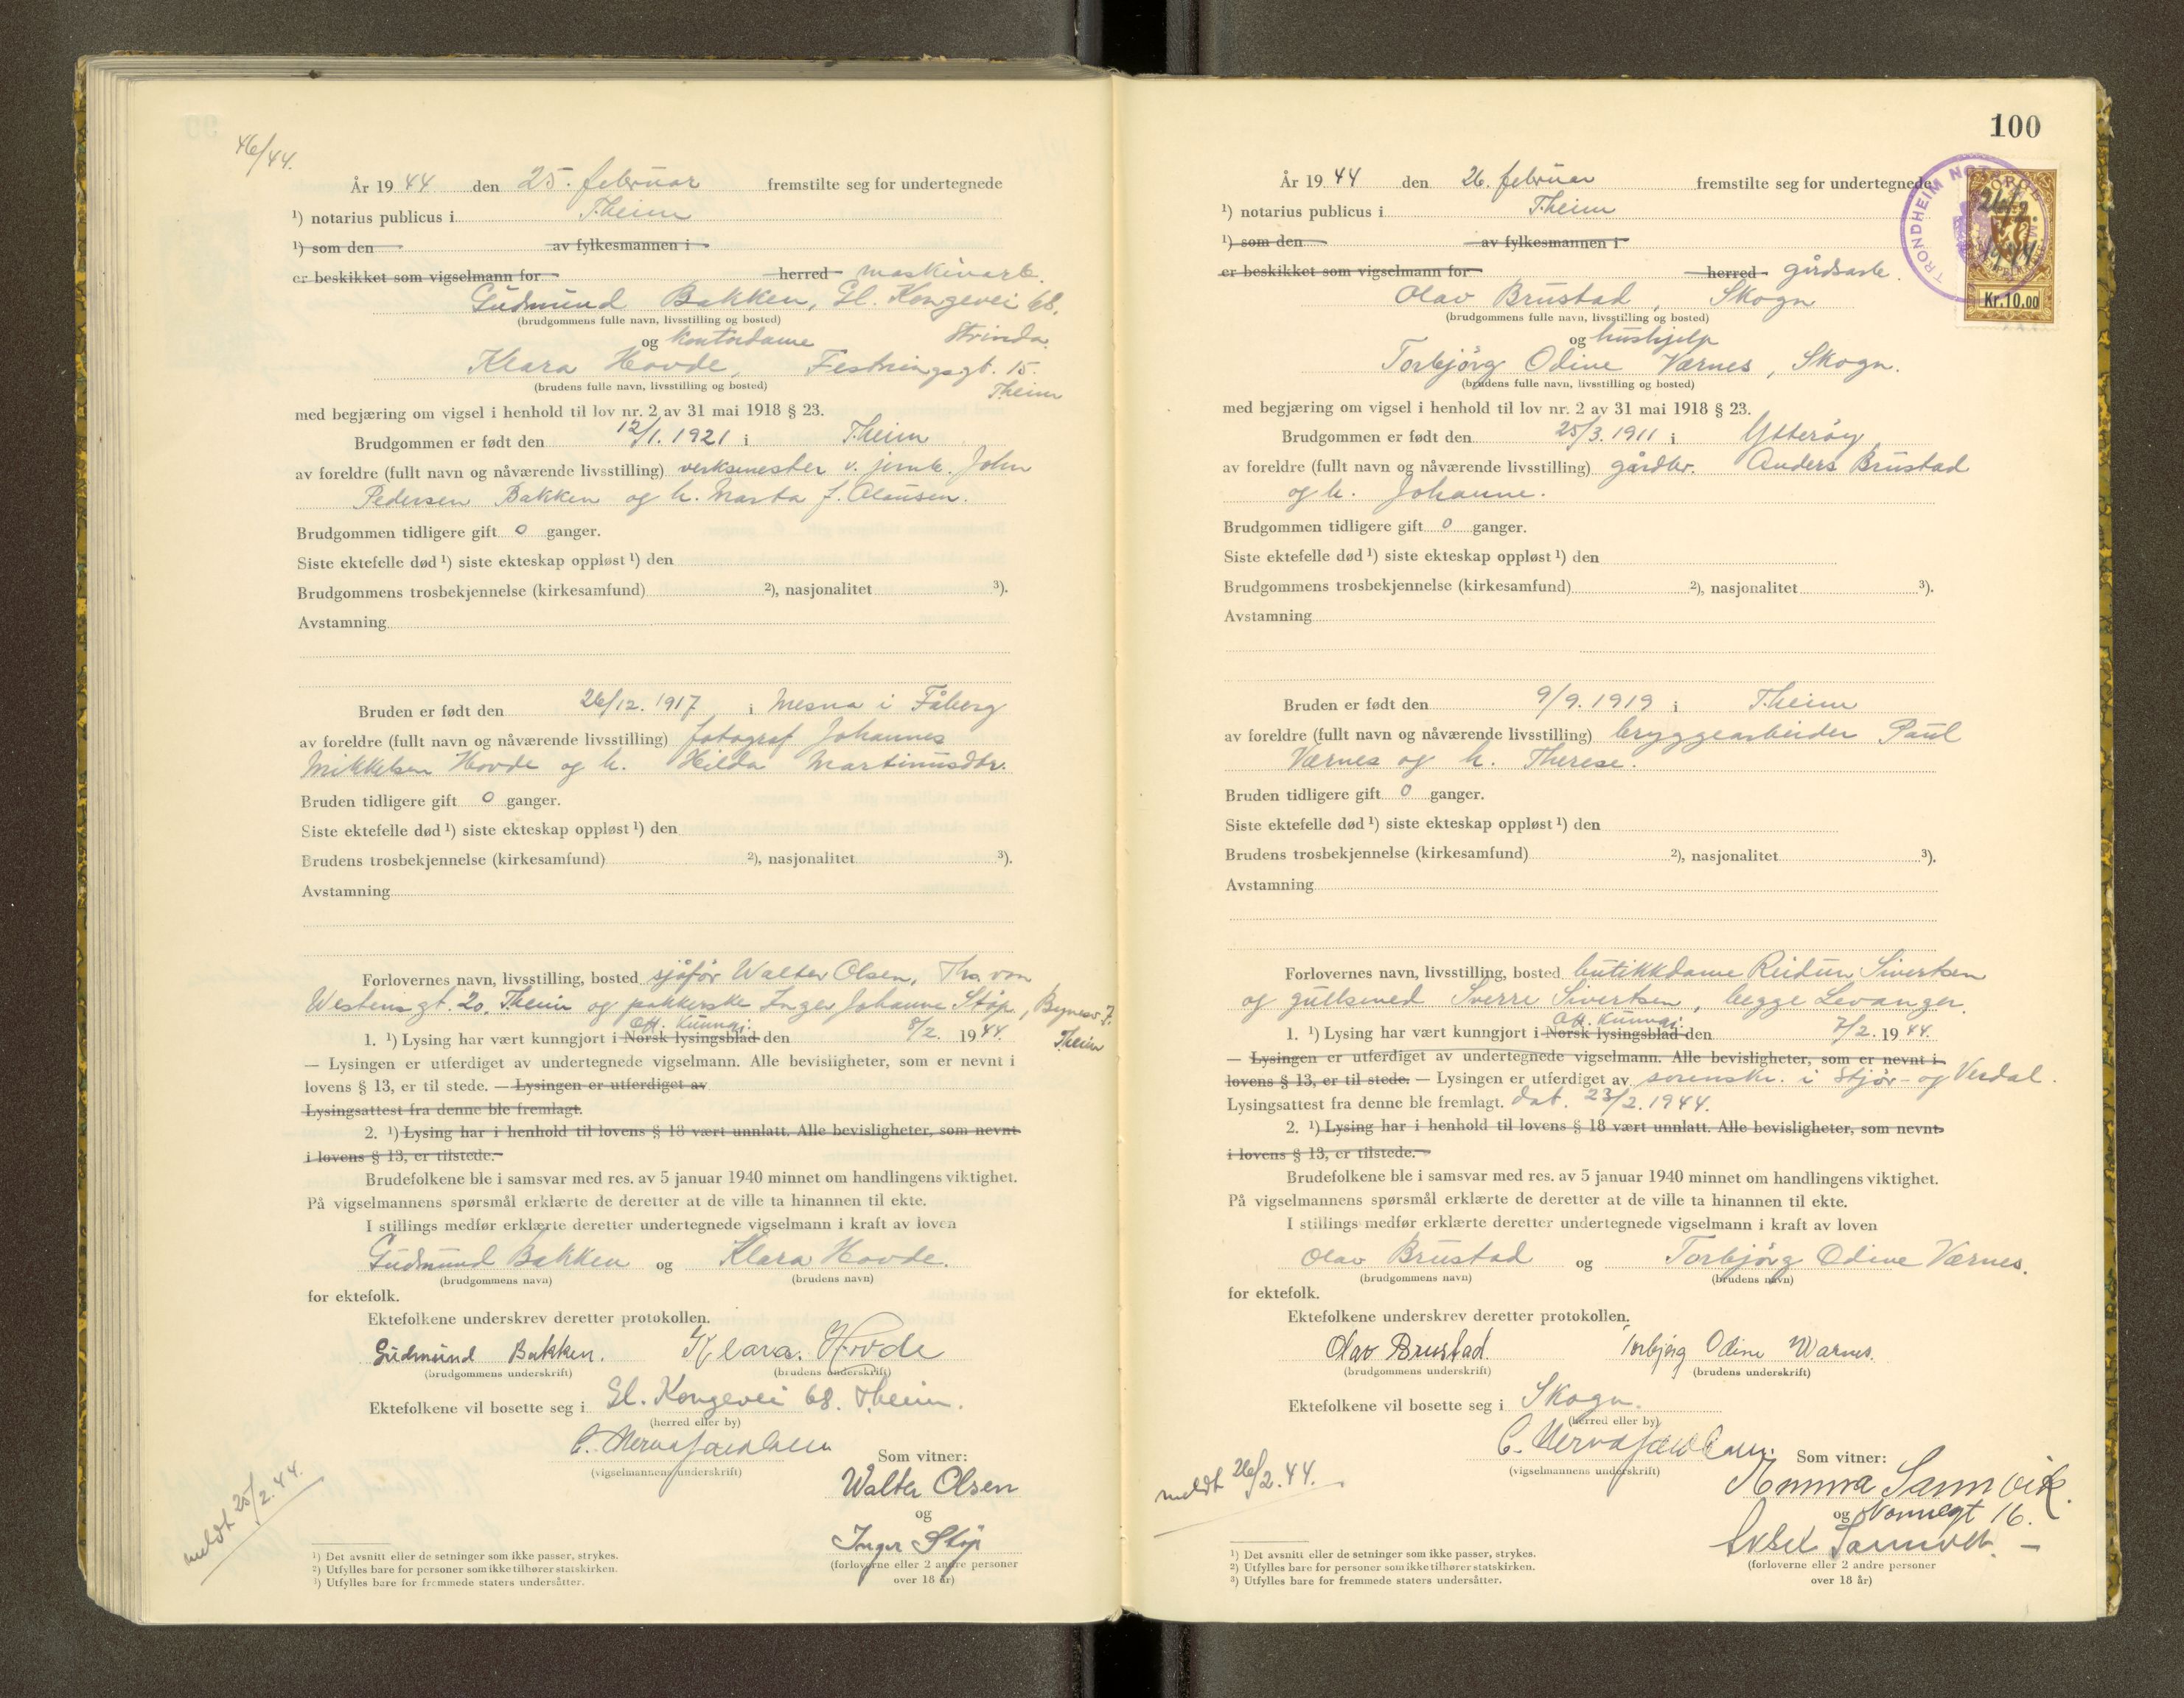 46/44.
År 1944 den 25. februar fremstilte seg for undertegnede
¹) notarius publicus i T.heim
¹) som den av fylkesmannen i
er beskikket som vigselmann for herred maskinarb.
Gudmund Bakken, Gl. Kongevei 68,
(brudgommens fulle navn, livsstilling og bosted)
Strinda.
og kontordame
Klara Hovde, Festningsgt. 15.
T.heim
(brudens fulle navn, livsstilling og bosted)
med begjæring om vigsel i henhold til lov nr. 2 av 31 mai 1918 § 23.
Brudgommen er født den 12/1. 1921 i T.heim
av foreldre (fullt navn og nåværende livsstilling) verksmester v. jernb. John
Pedersen Bakken og h. Marta f. Olausen.
Brudgommen tidligere gift 0 ganger.
Siste ektefelle død ¹) siste ekteskap oppløst ¹) den
Brudgommens trosbekjennelse (kirkesamfund) ²), nasjonalitet ³).
Avstamning
Bruden er født den 26/12. 1917 i Mesna i Fåberg
av foreldre (fullt navn og nåværende livsstilling) fotograf Johannes
Mikkelsen Hovde og h. Hilda Martinusdtr.
Bruden tidligere gift 0 ganger.
Siste ektefelle død ¹) siste ekteskap oppløst ¹) den
Brudens trosbekjennelse (kirkesamfund) ²), nasjonalitet ³).
Avstamning
Forlovernes navn, livsstilling, bosted sjåfør Walter Olsen, Ths. von
Westensgt. 20, T.heim og pakkerske Inger Johanne Støp, Bynesv. 7.
T.heim
Off. kunngj.
1. ¹) Lysing har vært kunngjort i Norsk lysingsblad den 8/2. 1944.
— Lysingen er utferdiget av undertegnede vigselmann. Alle bevisligheter, som er nevnt i
lovens § 13, er til stede. — Lysingen er utferdiget av
Lysingsattest fra denne ble fremlagt.
2. ¹) Lysing har i henhold til lovens § 18 vært unnlatt. Alle bevisligheter, som nevnt
i lovens § 13, er tilstede.
Brudefolkene ble i samsvar med res. av 5 januar 1940 minnet om handlingens viktighet.
På vigselmannens spørsmål erklærte de deretter at de ville ta hinannen til ekte.
I stillings medfør erklærte deretter undertegnede vigselmann i kraft av loven
Gudmund Bakken og Klara Hovde.
(brudgommens navn) (brudens navn)
for ektefolk.
Ektefolkene underskrev deretter protokollen.
Gudmund Bakken. Klara Hovde
(brudgommens underskrift) (brudens underskrift)
Ektefolkene vil bosette seg i Gl. Kongevei 68. T.heim.
(herred eller by)
(vigselmannens underskrift)
Som vitner:
Walter Olsen
og
Inger Støp
(forloverne eller 2 andre personer
over 18 år)
meldt 25/2. 44.
¹) Det avsnitt eller de setninger som ikke passer, strykes.
²) Utfylles bare for personer som ikke tilhører statskirken.
³) Utfylles bare for fremmede staters undersåtter.
100
TRONDHEIM NOT
NORGE
26/2.
1944
Kr.10.00
År 1944 den 26. februar fremstilte seg for undertegnede
¹) notarius publicus i T.heim
¹) som den av fylkesmannen i
er beskikket som vigselmann for herred gårdsarb.
Olav Brustad, Skogn
(brudgommens fulle navn, livsstilling og bosted)
og hushjelp
Torbjörg Odine Værnes, Skogn.
(brudens fulle navn, livsstilling og bosted)
med begjæring om vigsel i henhold til lov nr. 2 av 31 mai 1918 § 23.
Brudgommen er født den 25/3. 1911 i Ytterøy
av foreldre (fullt navn og nåværende livsstilling) gårdbr. Anders Brustad
og h. Johanne.
Brudgommen tidligere gift 0 ganger.
Siste ektefelle død ¹) siste ekteskap oppløst ¹) den
Brudgommens trosbekjennelse (kirkesamfund) ²), nasjonalitet ³).
Avstamning
Bruden er født den 9/9. 1919 i T.heim
av foreldre (fullt navn og nåværende livsstilling) bryggearbeider Paul
Værnes og h. Therese.
Bruden tidligere gift 0 ganger.
Siste ektefelle død ¹) siste ekteskap oppløst ¹) den
Brudens trosbekjennelse (kirkesamfund) ²), nasjonalitet ³).
Avstamning
Forlovernes navn, livsstilling, bosted butikkdame Reidun Sivertsen
og gullsmed Sverre Sivertsen, begge Levanger.
Off. kunngj.
1. ¹) Lysing har vært kunngjort i Norsk lysingsblad den 7/2. 1944.
— Lysingen er utferdiget av undertegnede vigselmann. Alle bevisligheter, som er nevnt i
lovens § 13, er til stede. — Lysingen er utferdiget av sorenskr. i Stjør- og Verdal.
Lysingsattest fra denne ble fremlagt. dat. 23/2. 1944.
2. ¹) Lysing har i henhold til lovens § 18 vært unnlatt. Alle bevisligheter, som nevnt
i lovens § 13, er tilstede.
Brudefolkene ble i samsvar med res. av 5 januar 1940 minnet om handlingens viktighet.
På vigselmannens spørsmål erklærte de deretter at de ville ta hinannen til ekte.
I stillings medfør erklærte deretter undertegnede vigselmann i kraft av loven
Olav Brustad og Torbjörg Odine Værnes.
(brudgommens navn) (brudens navn)
for ektefolk.
Ektefolkene underskrev deretter protokollen.
Olav Brustad. Torbjörg Odine Warnes.
(brudgommens underskrift) (brudens underskrift)
Ektefolkene vil bosette seg i Skogn.
(herred eller by)
(vigselmannens underskrift)
Som vitner:
Sannvik.
og Nonnegt 16.
(forloverne eller 2 andre personer
over 18 år)
meldt 26/2. 44.
¹) Det avsnitt eller de setninger som ikke passer, strykes.
²) Utfylles bare for personer som ikke tilhører statskirken.
³) Utfylles bare for fremmede staters undersåtter.